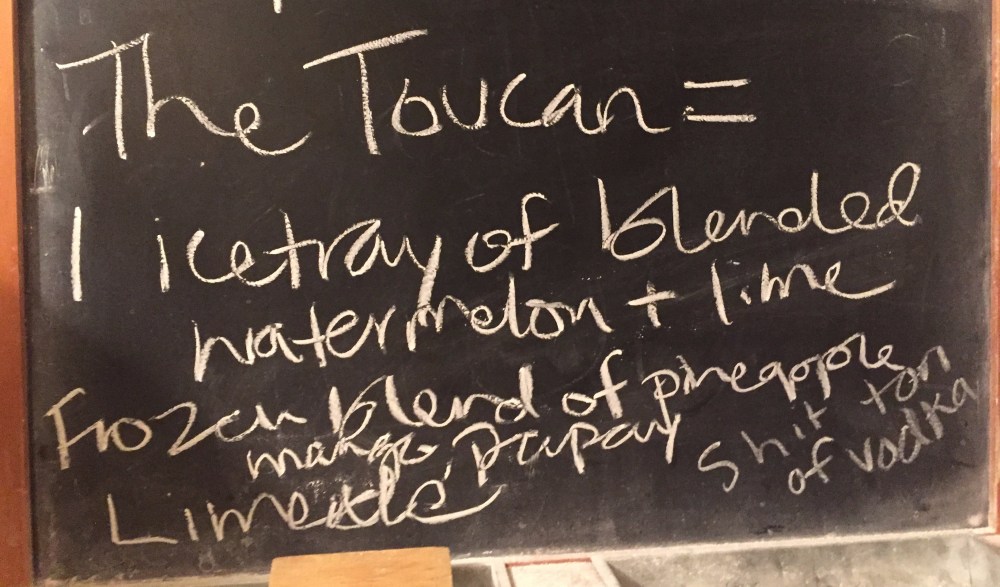 The Toucan =
1 icetray of blended
watermelon + lime
Frozen blend of pineapple
mango, papay
Limeade
Shit ton
of vodka